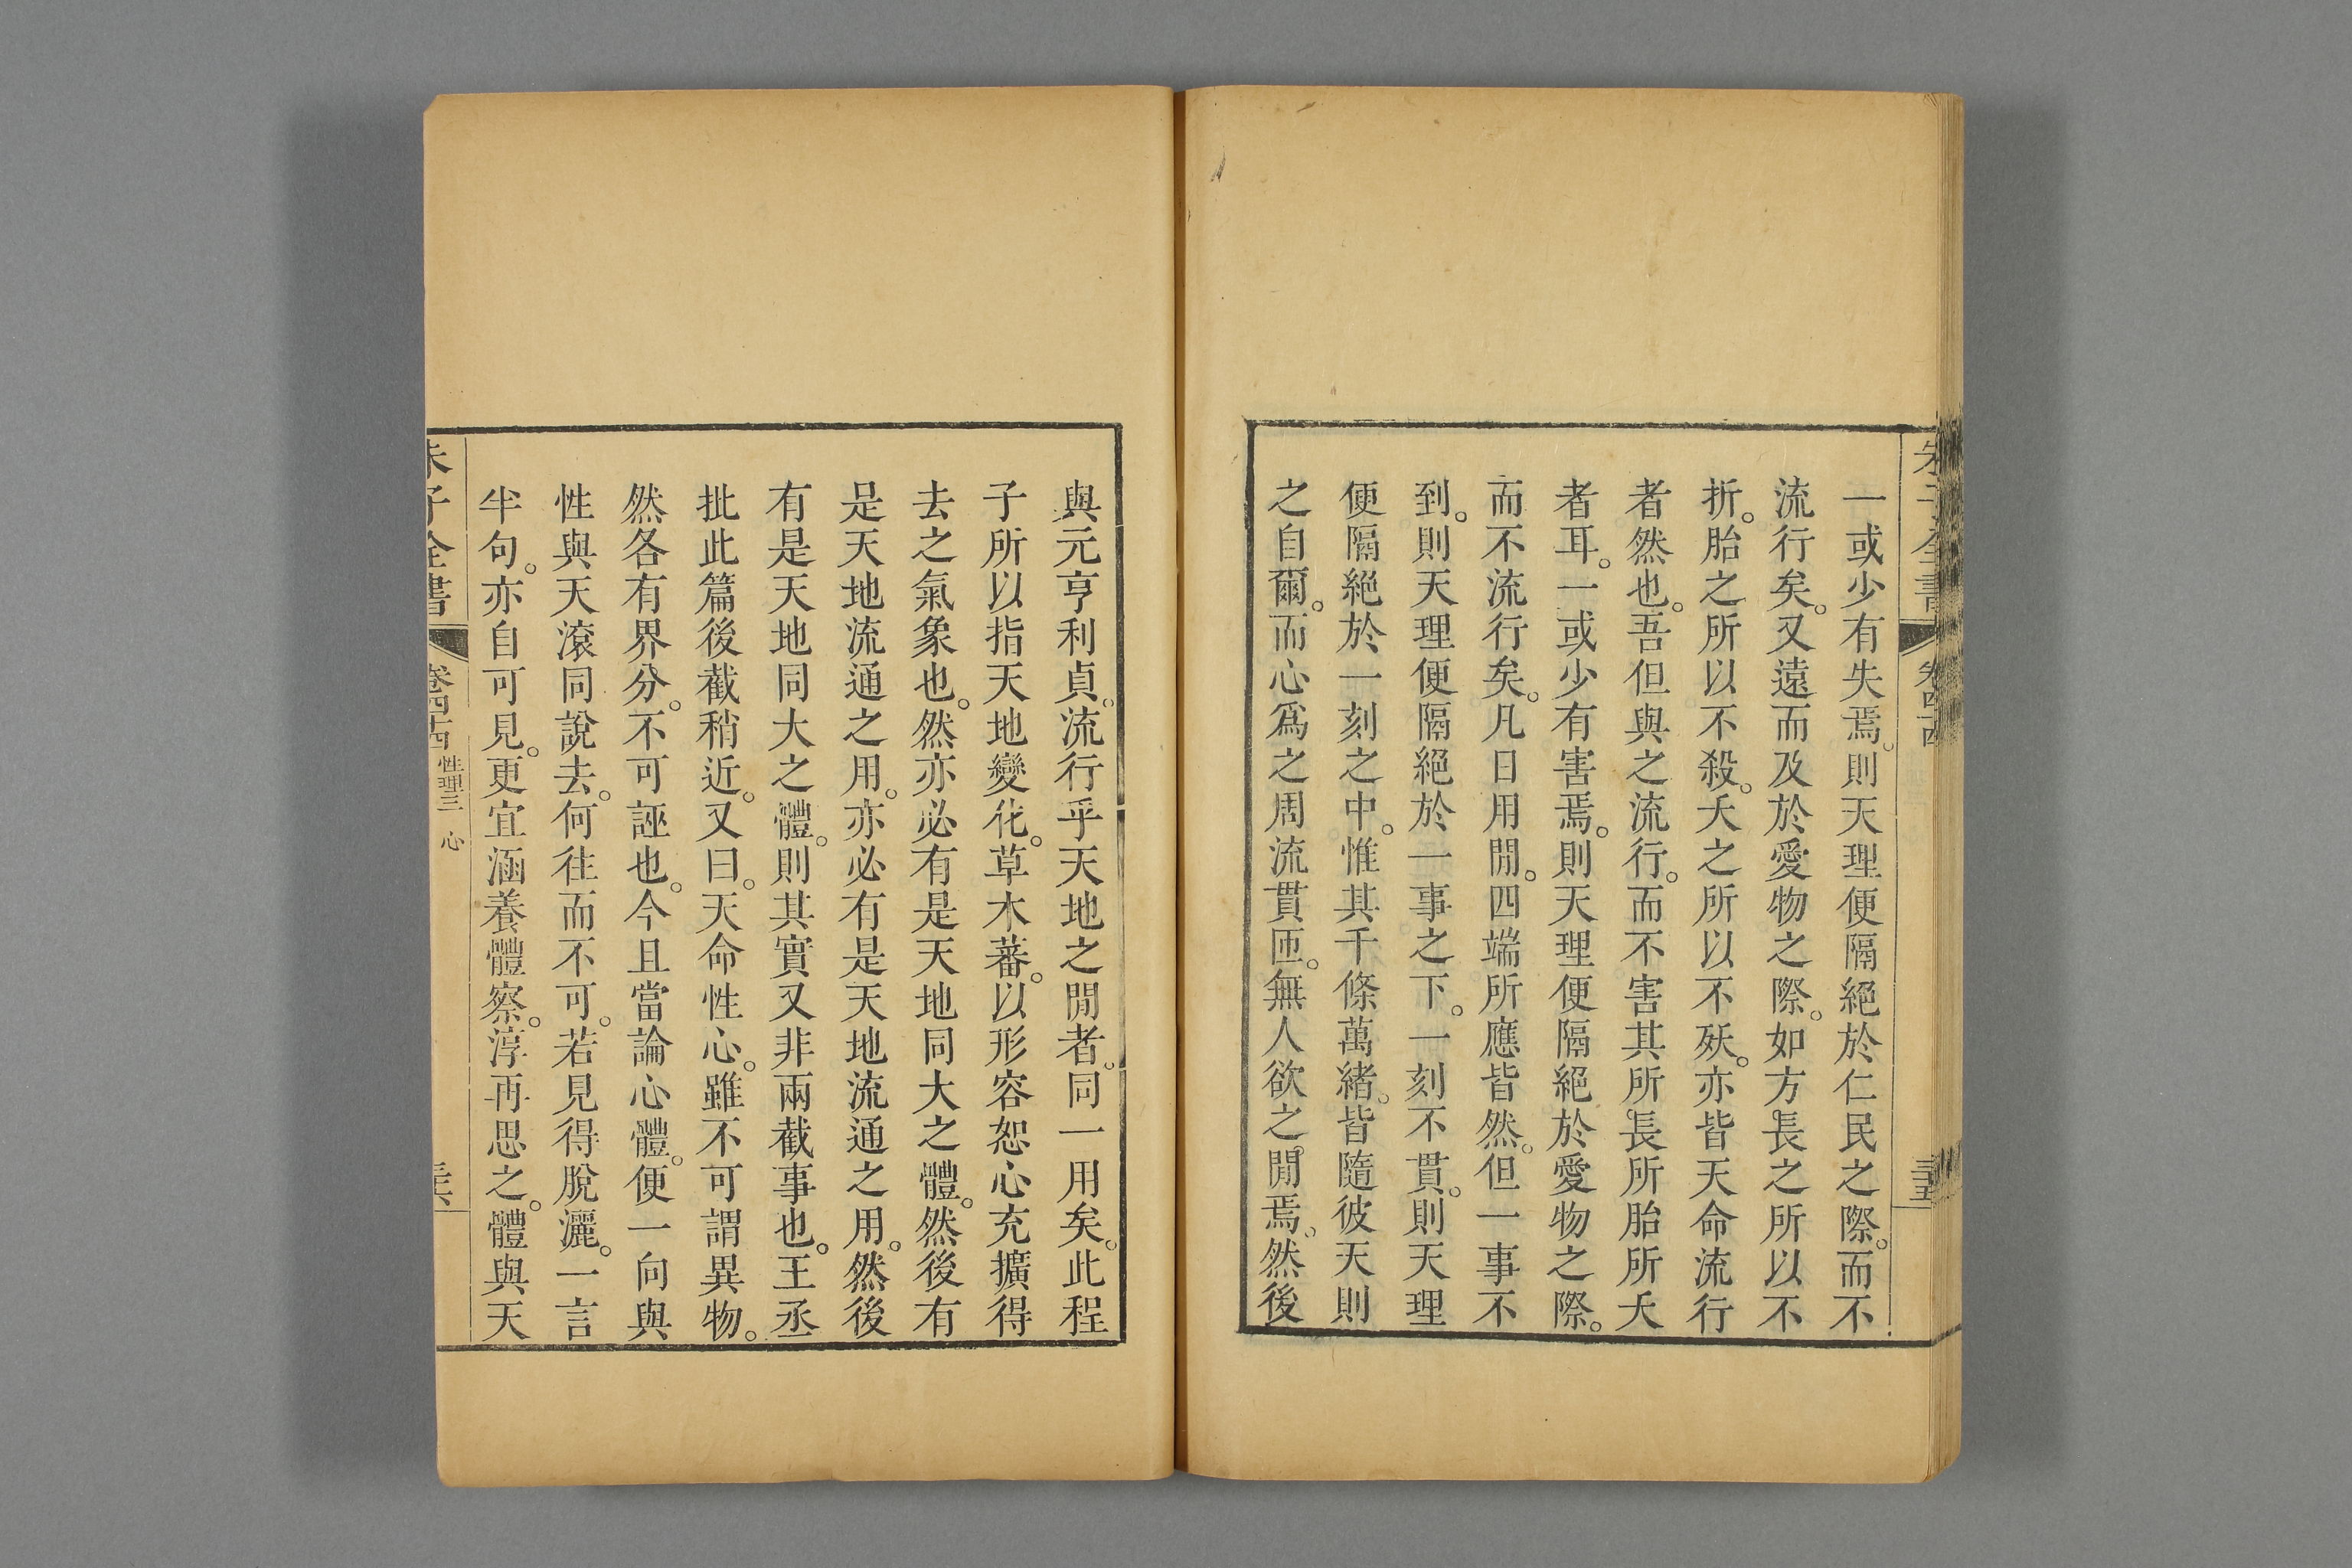 朱子全書 卷四十四 三十五
一或少有失焉。則天理便隔絕於仁民之際。而不
流行矣。又遠而及於愛物之際。如方長之所以不
折。胎之所以不殺。夭之所以不殀。亦皆天命流行
者然也。吾但與之流行。而不害其所長所胎所夭
者耳。一或少有害焉。則天理便隔絕於愛物之際。
而不流行矣。凡日用閒。四端所應皆然。但一事不
到。則天理便隔絕於一事之下。一刻不貫。則天理
便隔絕於一刻之中。惟其千條萬緒。皆隨彼天則
之自爾。而心爲之周流貫匝。無人欲之閒焉。然後
與元亨利貞。流行乎天地之閒者。同一用矣。此程
子所以指天地變化。草木蕃。以形容恕心充擴得
去之氣象也。然亦必有是天地同大之體。然後有
是天地流通之用。亦必有是天地流通之用。然後
有是天地同大之體。則其實又非兩截事也。王丞
批此篇後截稍近。又曰。天命性心。雖不可謂異物。
然各有界分。不可誣也。今且當論心體。便一向與
性與天滾同說去。何往而不可。若見得脫灑。一言
半句。亦自可見。更宜涵養體察。淳再思之。體與天
朱子全書 卷四十四 性理三 心 三十六